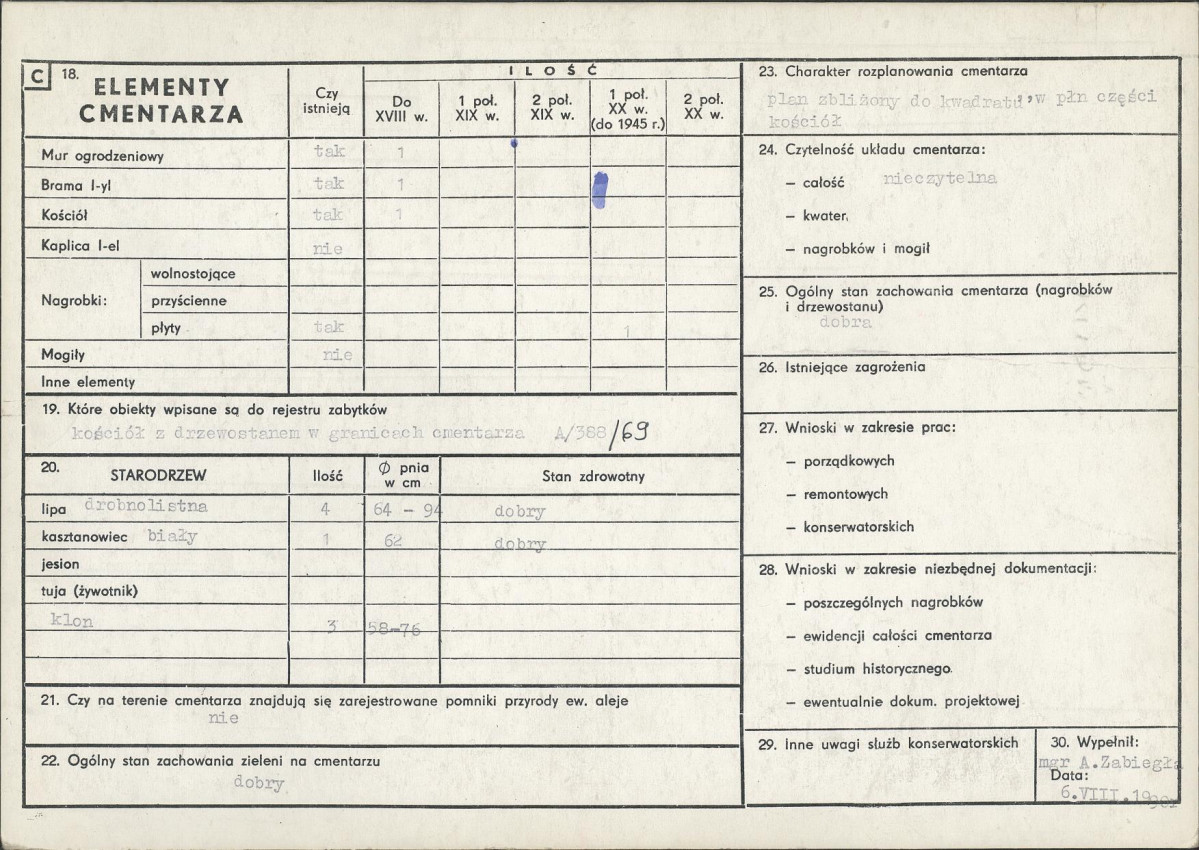 C 18. ELEMENTY CMENTARZA
Czy istnieją
ILOŚĆ
Do XVIII w.
1 poł. XIX w.
2 poł. XIX w.
1 poł. XX w. (do 1945 r.)
2 poł. XX w.
Mur ogrodzeniowy tak 1
Brama I-yl tak 1
Kościół tak 1
Kaplica I-el nie
Nagrobki:
wolnostojące
przyścienne
płyty tak 1
Mogiły nie
Inne elementy
19. Które obiekty wpisane są do rejestru zabytków
kościół z drzewostanem w granicach cmentarza A/388/69
20. STARODRZEW Ilość Ø pnia w cm Stan zdrowotny
lipa drobnolistna 4 64 - 94 dobry
kasztanowiec biały 1 62 dobry
jesion
tuja (żywotnik)
klon 3 58-76
21. Czy na terenie cmentarza znajdują się zarejestrowane pomniki przyrody ew. aleje
nie
22. Ogólny stan zachowania zieleni na cmentarzu
dobry
23. Charakter rozplanowania cmentarza
plan zbliżony do kwadratu, w płn części
kościół
24. Czytelność układu cmentarza:
– całość nieczytelna
– kwater
– nagrobków i mogił
25. Ogólny stan zachowania cmentarza (nagrobków
i drzewostanu)
dobra
26. Istniejące zagrożenia
27. Wnioski w zakresie prac:
– porządkowych
– remontowych
– konserwatorskich
28. Wnioski w zakresie niezbędnej dokumentacji:
– poszczególnych nagrobków
– ewidencji całości cmentarza
– studium historycznego
– ewentualnie dokum. projektowej
29. Inne uwagi służb konserwatorskich
30. Wypełnił:
mgr A.Zabiegła
Data:
6.VIII.19